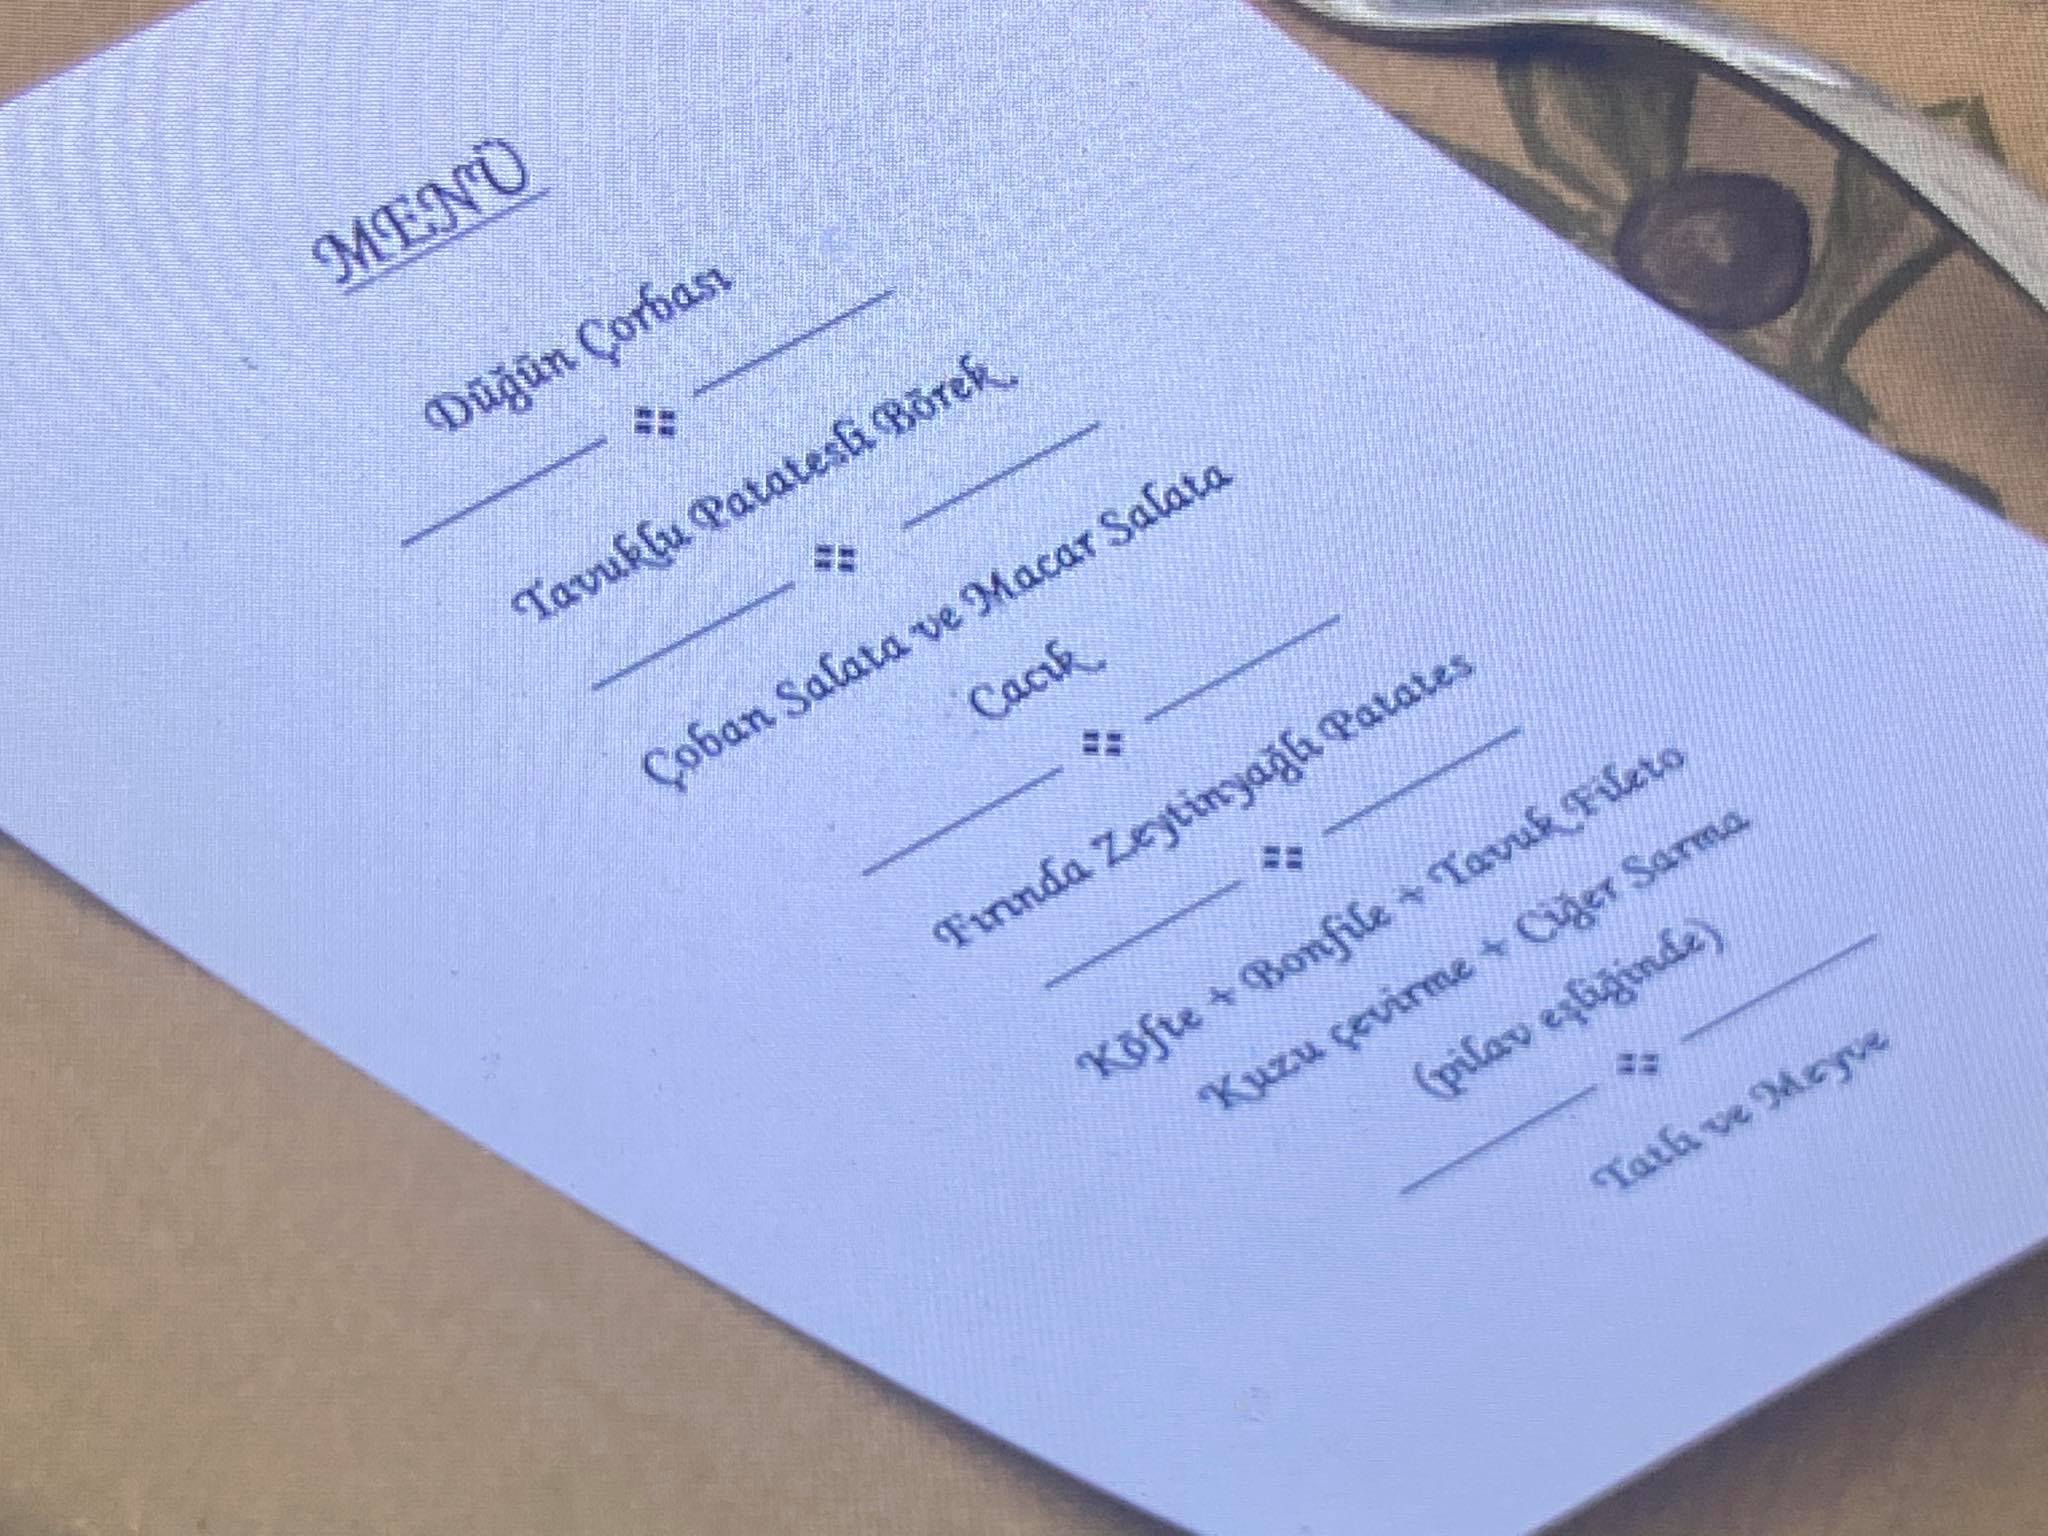 MENÜ
Düğün Çorbası
Tavuklu Patatesli Börek
Çoban Salata ve Macar Salata
Cacık
Fırında Zeytinyağlı Patates
Köfte + Bonfile + Tavuk Fileto
Kuzu çevirme + Ciğer Sarma
(pilav eşliğinde)
Tatlı ve Meyve